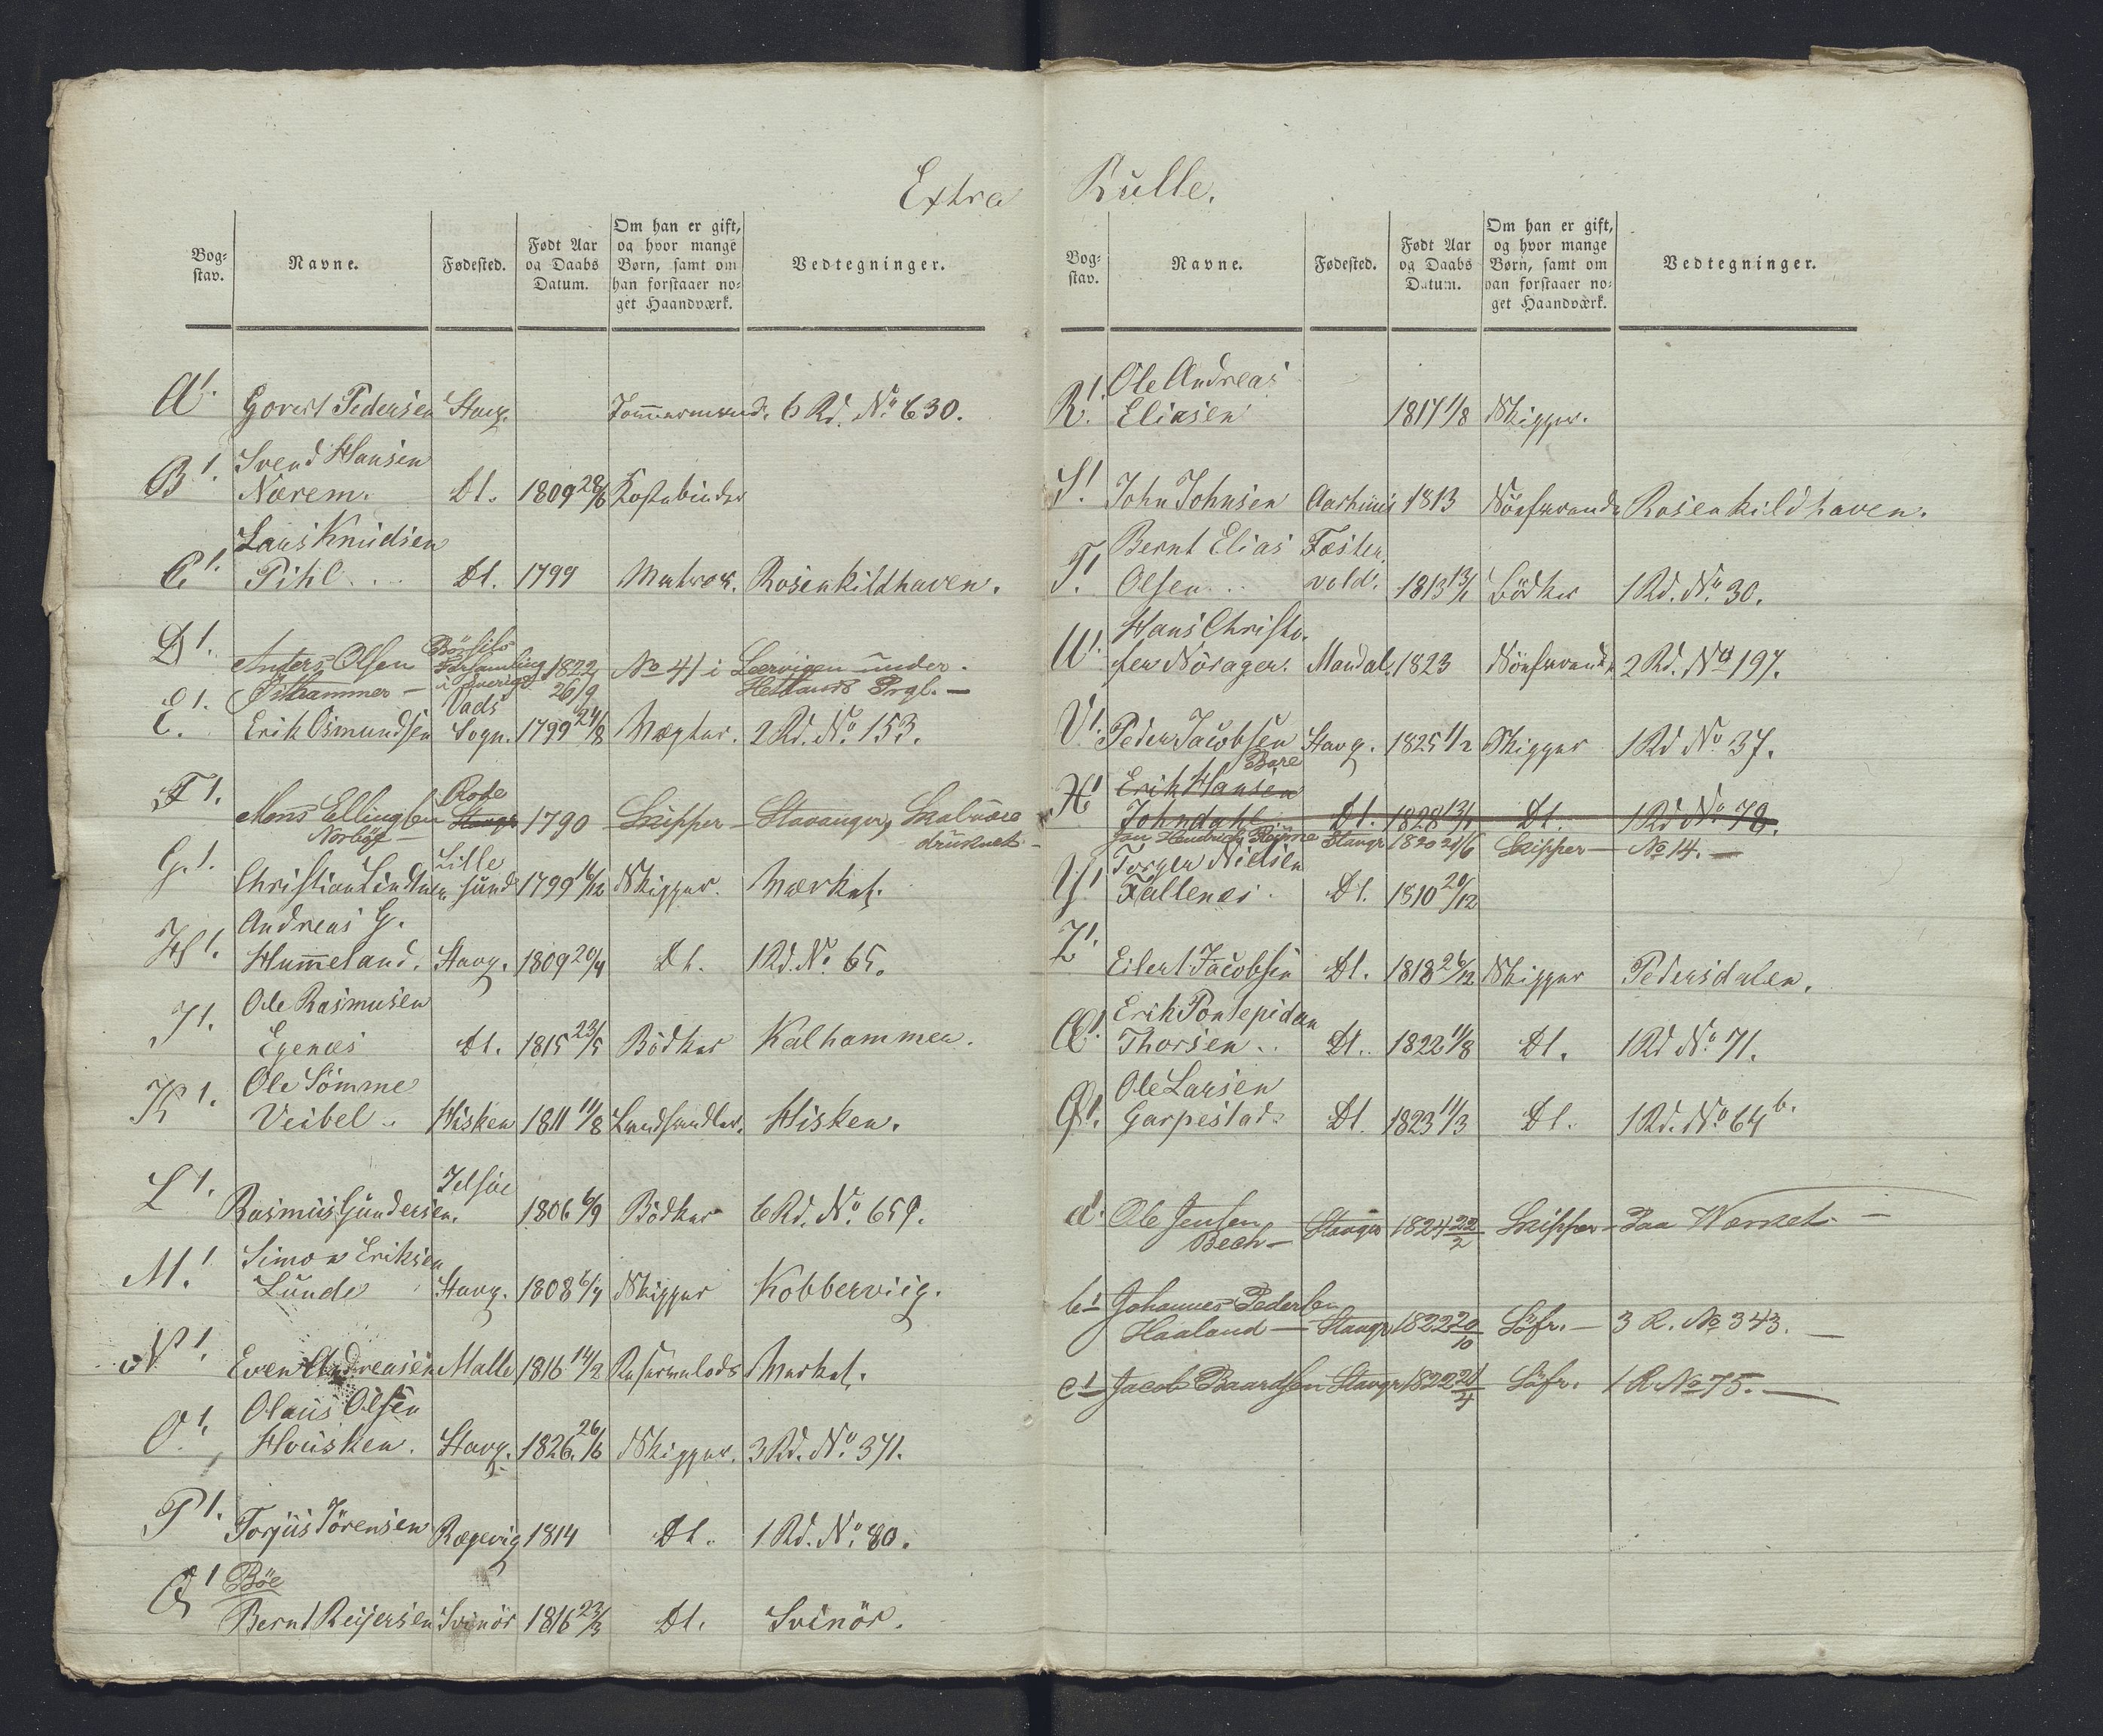 Extra Rulle.
Bog-
stav.
Navne.
Fødested.
Født Aar
og Daabs
Datum.
Om han er gift,
og hvor mange
Børn, samt om
han forstaaer no-
get Haandværk.
Vedtegninger.
A1. Govert Pedersen Stavg. Tommermand. 6 Rd. No. 630.
Svend Hansen
B1. Nærem. Dt. 1809 28/6 Kostebinder
Lars Knudsen
C1. Pihl Dt. 1799 Matros. Rosenkildhaven.
D1. Anders Olsen 1822 No 41 i Leervigen under
Østhammer i Sverige 26/9 Hetlands Prgl.
Vads
E1. Erik Osmundsen Sogn. 1799 24/8 Mægler. 2 Rd. No. 153.
Rode
F1. Mons Ellingsen Stavgr 1790 Skipper Stavanger,
Norbøg druknet
Lille
G.1. Christian Lindtner sund 1799 16/12 Skipper. Værket.
Andreas G.
H1. Hummeland. Stavg. 1809 20/4 Dt. 1 Rd. No. 65.
Ole Rasmusen
I1. Egenæs Dt. 1815 23/5 Bödker Kalhammer.
Ole Sömme
K1. Veibel Hisken 1811 11/8 Landhandler. Hisken.
Jelsøe
L1. Rasmus Gundersen. 1806 6/9 Bödker 6 Rd. No. 659.
Simon Eriksen
M.1 Lunde Stavg. 1808 6/4 Skipper Kobberviig.
N1. Even Andreasen Malle 1816 14/2 Reservelods Værket.
Olaus Olsen
O1. Housken. Stavg. 1826. 26/6 Skipper. 3 Rd. No. 371.
P1. Torjus Törensen Rægevig 1814 Dt. 1 Rd. No. 80.
Q1 Böe
Bernt Reijersen Svinör 1816 23/3 Dt. Svinör.
Bog-
stav.
Navne.
Fødested.
Født Aar
og Daabs
Datum.
Om han er gift,
og hvor mange
Børn, samt om
han forstaaer no-
get Haandværk.
Vedtegninger.
Ole Andreas
R1. Eliasen 1817 1/8 Skipper.
S1. John Johnsen Aarhuus 1813 Söefarende Rosenkildhaven.
Bernt Elias Fæster
T1. Olsen vold. 1813 13/1 Bödker 1 Rd. No. 30.
Hans Christo-
W1. fer Nörager. Mandal. 1823 Söefarende 2 Rd. No 197.
V1. Peder Jacobsen Stavg. 1825 1/2 Skipper 1 Rd No. 37.
Bore
X1 Erik Hansen
Johndahl Dt. 1828 13/1 Dt. 1 Rd No. 78.
Jan Hendrich Stavgr 1820 21/6 Skipper No 14.
Torger Nielsen
Y1 Tallenæs Dt. 1810 20/12
Z1. Eilert Jacobsen Dt. 1818 26/12 Skipper Pedersdalen.
Erik Pontepidan
Æ1. Thorsen Dt. 1822 11/8 Dt. 1 Rd No. 71.
Ole Larsen
Ø1. Garpestad Dt. 1823 11/3 Dt. 1 Rd. No 64 b.
a1. Ole Jensen Stavgr 1824 22/2 Skipper Paa Værket.
Bech
b1 Johannes Pedersen
Haaland Stavgr 1822 20/10 Söfr. 3 R. No 343.
c1 Jacob Baardsen Stavgr 1822 21/4 Söfr. 1 R No 75.